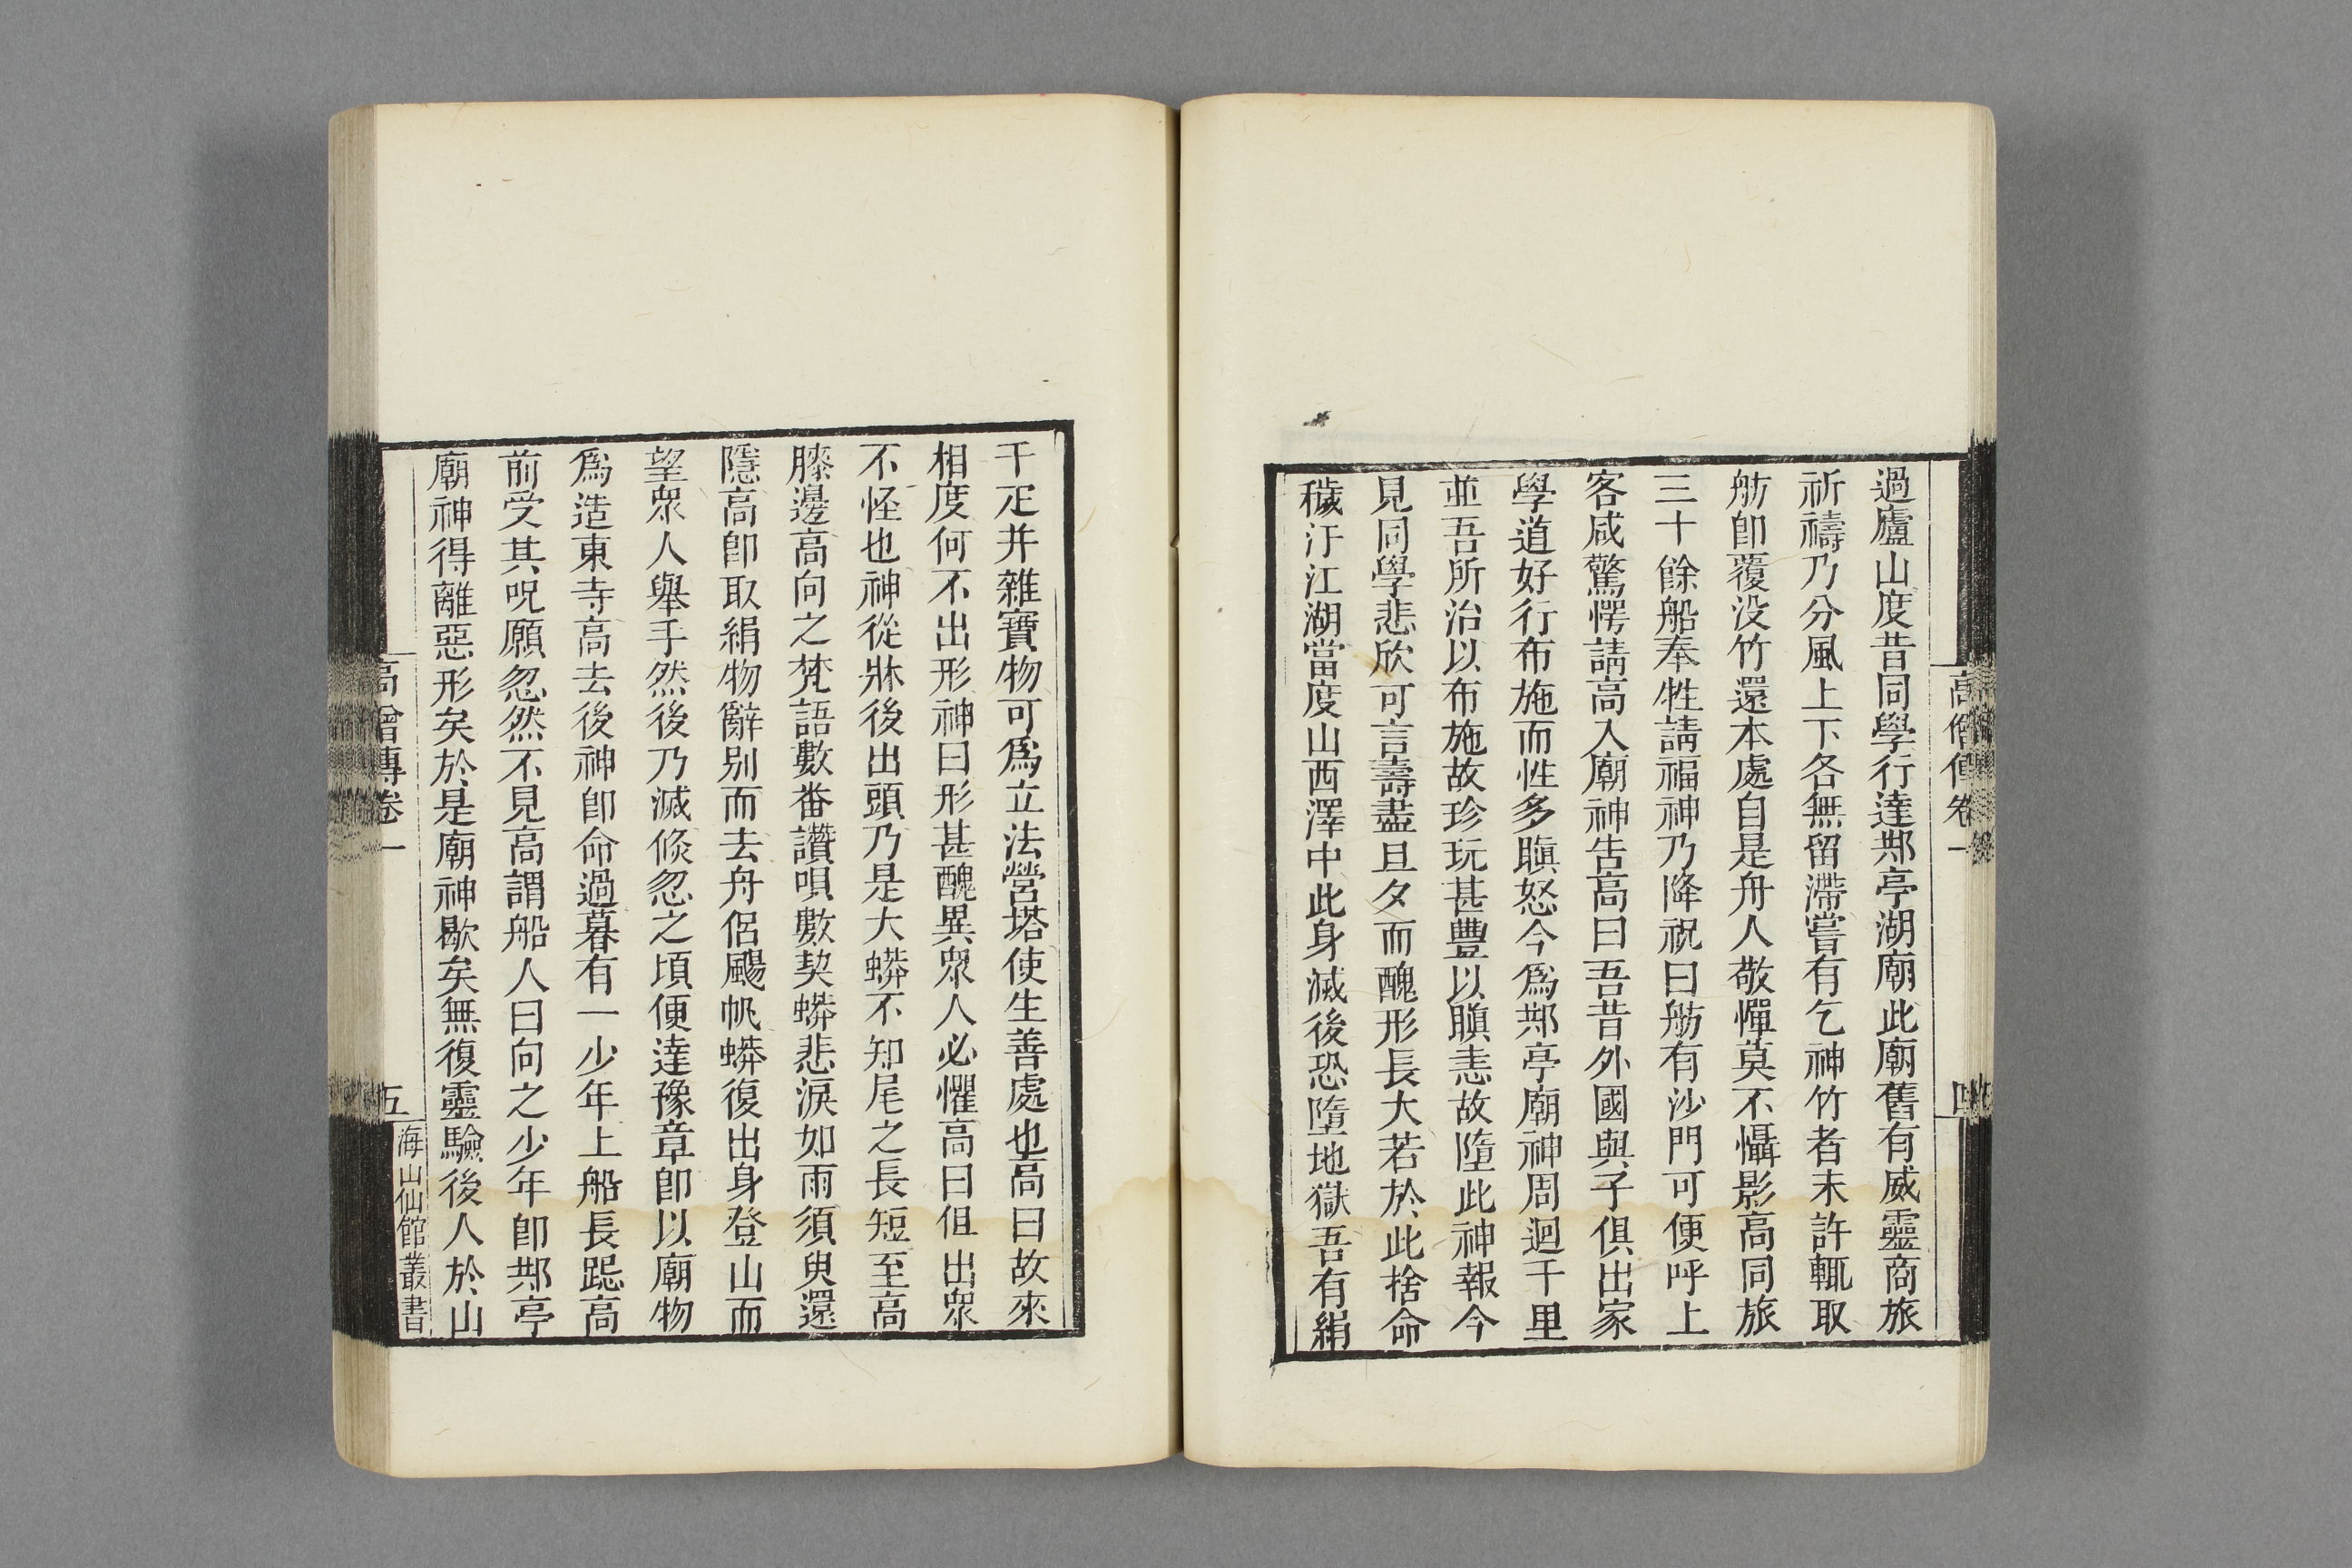 高僧傳卷一
四
過廬山度昔同學行達䢼亭湖廟此廟舊有威靈商旅
祈禱乃分風上下各無留滯嘗有乞神竹者未許輒取
舫卽覆没竹還本處自是舟人敬憚莫不懾影高同旅
三十餘船奉牲請福神乃降祝曰舫有沙門可便呼上
客咸驚愕請高入廟神告高曰吾昔外國與子俱出家
學道好行布施而性多瞋怒今爲䢼亭廟神周迴千里
並吾所治以布施故珍玩甚豐以瞋恚故墮此神報今
見同學悲欣可言壽盡旦夕而醜形長大若於此捨命
穢汙江湖當度山西澤中此身滅後恐墮地獄吾有絹
千疋并雜寶物可爲立法營塔使生善處也高曰故來
相度何不出形神曰形甚醜異衆人必懼高曰但出衆
不怪也神從牀後出頭乃是大蟒不知尾之長短至高
膝邊高向之梵語數番讚唄數契蟒悲淚如雨須臾還
隱高卽取絹物辭别而去舟侶颺帆蟒復出身登山而
望衆人舉手然後乃滅倐忽之頃便達豫章卽以廟物
爲造東寺高去後神卽命過暮有一少年上船長跽高
前受其呪願忽然不見高謂船人曰向之少年卽䢼亭
廟神得離惡形矣於是廟神歇矣無復靈驗後人於山
高僧傳卷一
五
海山仙館叢書